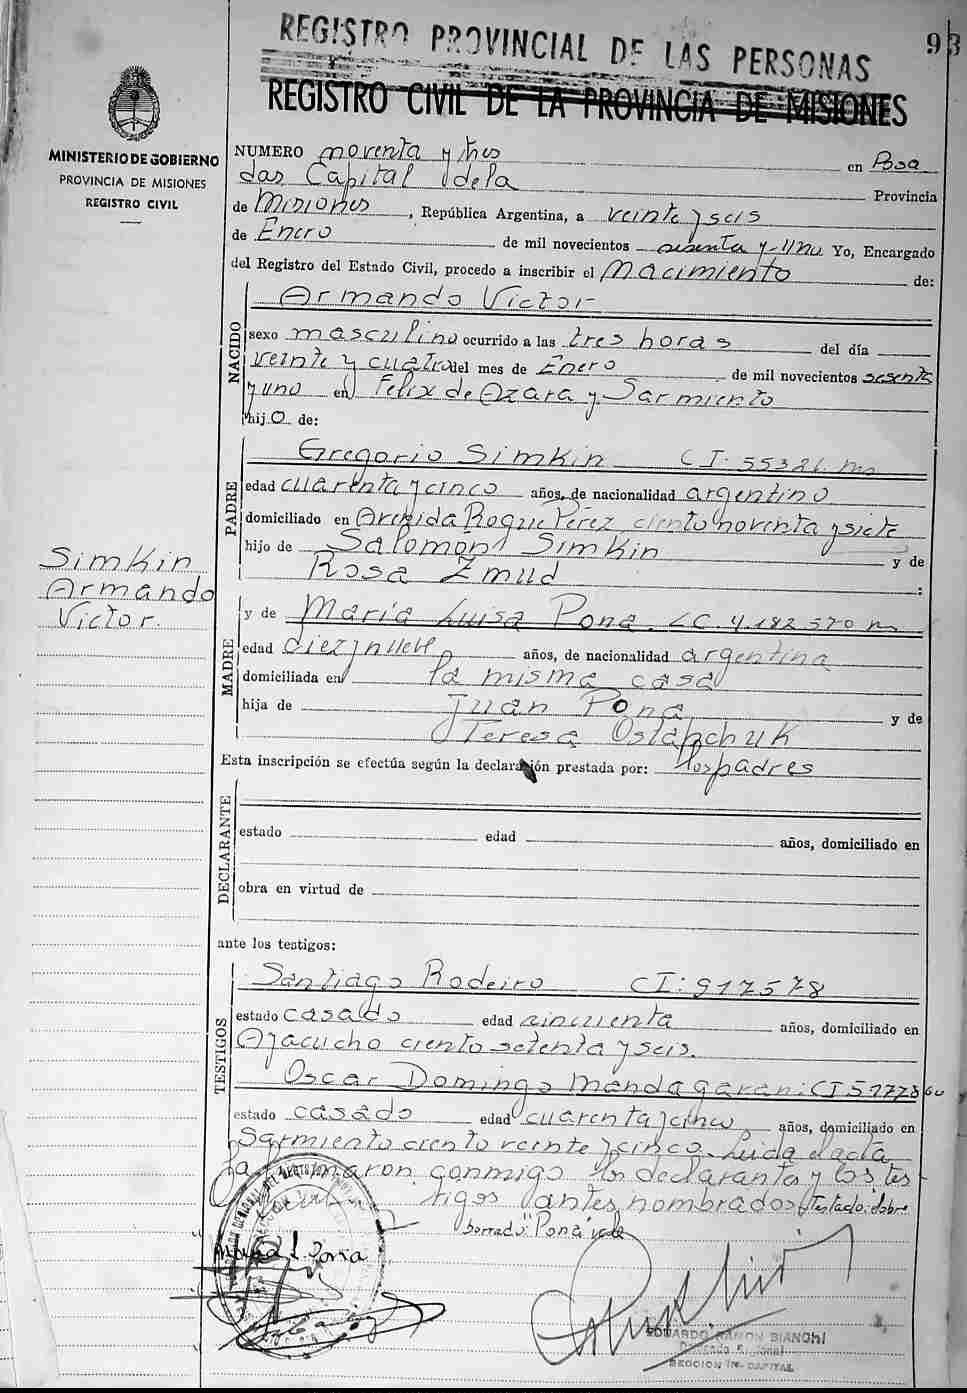 93
REGISTRO PROVINCIAL DE LAS PERSONAS
REGISTRO CIVIL DE LA PROVINCIA DE MISIONES
MINISTERIO DE GOBIERNO
PROVINCIA DE MISIONES
REGISTRO CIVIL
NUMERO noventa y tres en Posa
das Capital de la Provincia
de Misiones, República Argentina, a veinte y seis
de Enero de mil novecientos sesenta y uno Yo, Encargado
del Registro del Estado Civil, procedo a inscribir el Nacimiento de:
NACIDO
Armando Victor
sexo masculino ocurrido a las tres horas del día
veinte y cuatro del mes de Enero de mil novecientos sesenta
y uno en Felix de Azara y Sarmiento
hijo de:
PADRE
Gregorio Simkin CI. 55321. ms
edad cuarenta y cinco años, de nacionalidad argentino
domiciliado en Avenida Roque Pérez ciento noventa y siete
hijo de Salomón Simkin y de
Rosa Zmud :
Simkin
Armando
Victor.
MADRE
y de María Luisa Pona. LC. 4.182.570 ms
edad diez y nueve años, de nacionalidad argentina
domiciliada en la misma casa
hija de Juan Pona y de
Teresa Ostapchuk
Esta inscripción se efectúa según la declaración prestada por: los padres
DECLARANTE
estado edad años, domiciliado en
obra en virtud de
ante los testigos:
TESTIGOS
Santiago Rodeiro CI: 917578
estado casado edad cincuenta años, domiciliado en
Ayacucho ciento setenta y seis.
Oscar Domingo Mandagaran: CI
estado casado edad cuarenta y cinco años, domiciliado en
Sarmiento ciento veinte y cinco. Leida el acta
la firmaron conmigo los declarantes y los tes
tigos antes nombrados. Testado: sobre
borrado "Pona" vale
Maria L. Pona
EDUARDO RAMON BIANCHI
Delegado Regional
SECCION 1ra. CAPITAL